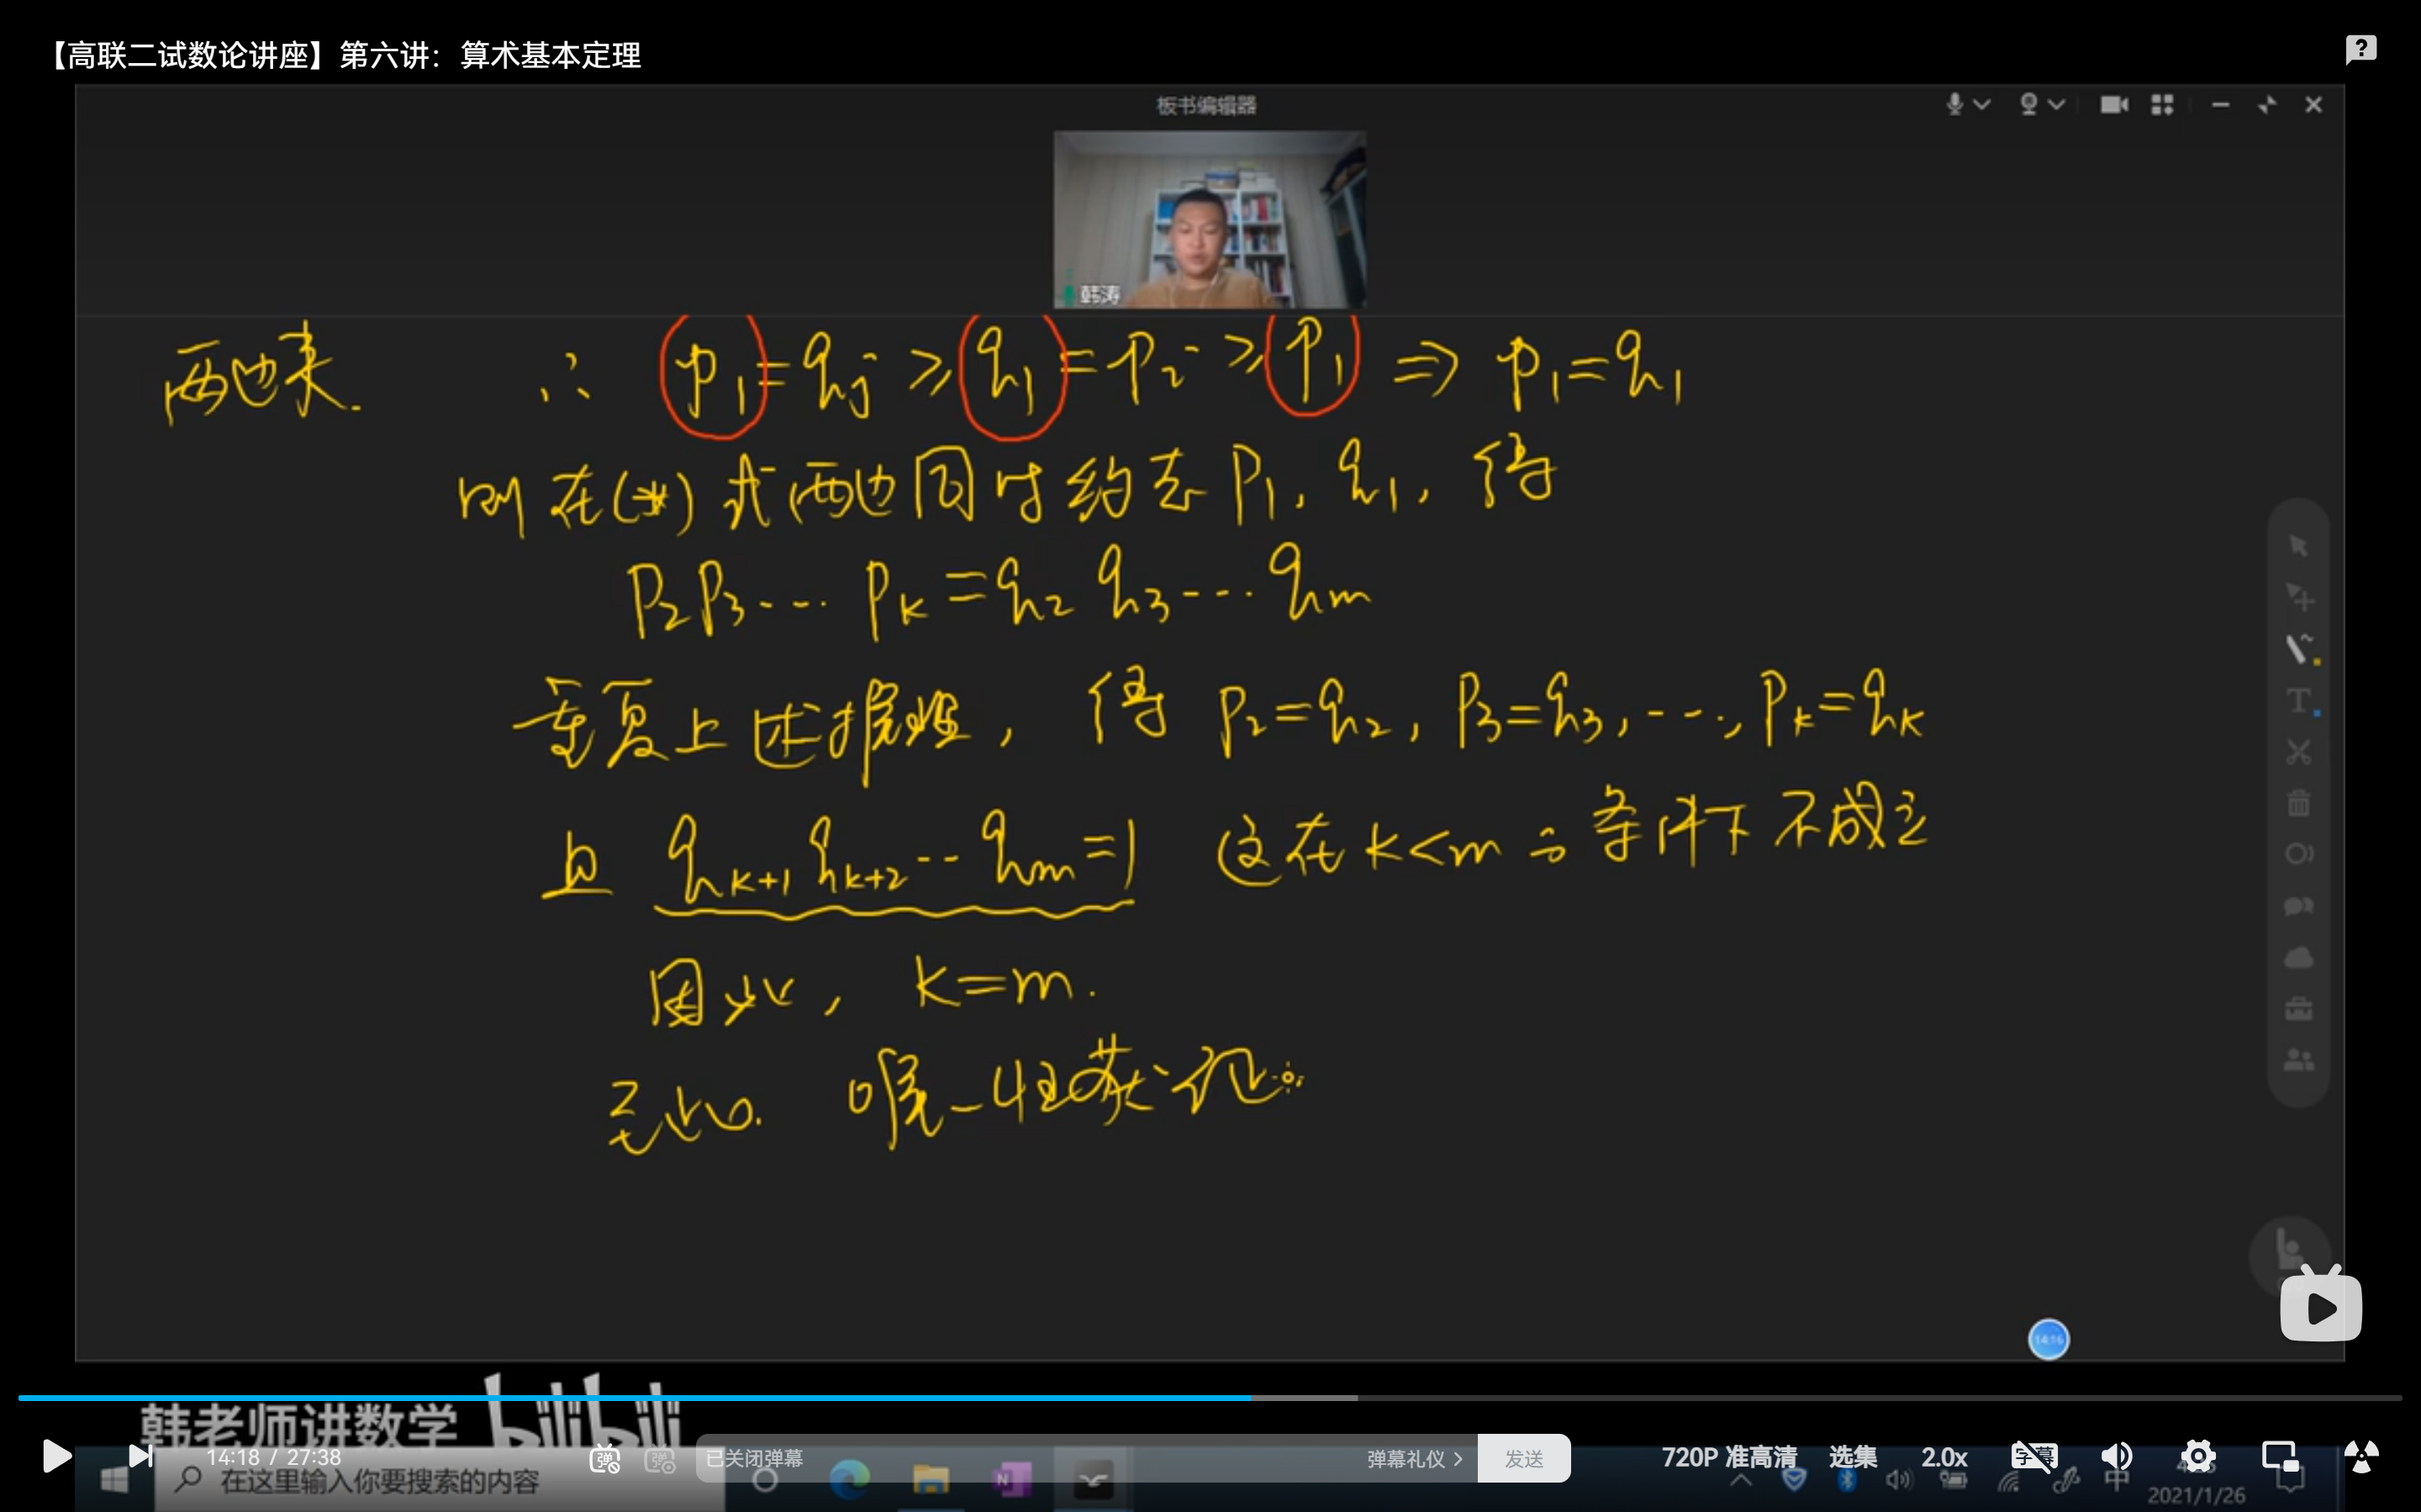 【高联二试数论讲座】第六讲：算术基本定理
板书编辑器
韩涛
两边夹. ∴ p₁=qⱼ≥q₁=pᵢ≥p₁ ⇒ p₁=q₁
则在(*)式两边同时约去p₁,q₁,得
p₂p₃…pₖ=q₂q₃…qₘ
重复上述推理,得 p₂=q₂,p₃=q₃,…,pₖ=qₖ
且 qₖ₊₁qₖ₊₂…qₘ=1 这在k<m的条件下不成立
因此, k=m.
至此. 唯一性获证
14:16
韩老师讲数学 bilibili
14:18 / 27:38 弹 已关闭弹幕 弹幕礼仪 > 发送 720P 准高清 选集 2.0x 字幕
在这里输入你要搜索的内容 中
2021/1/26